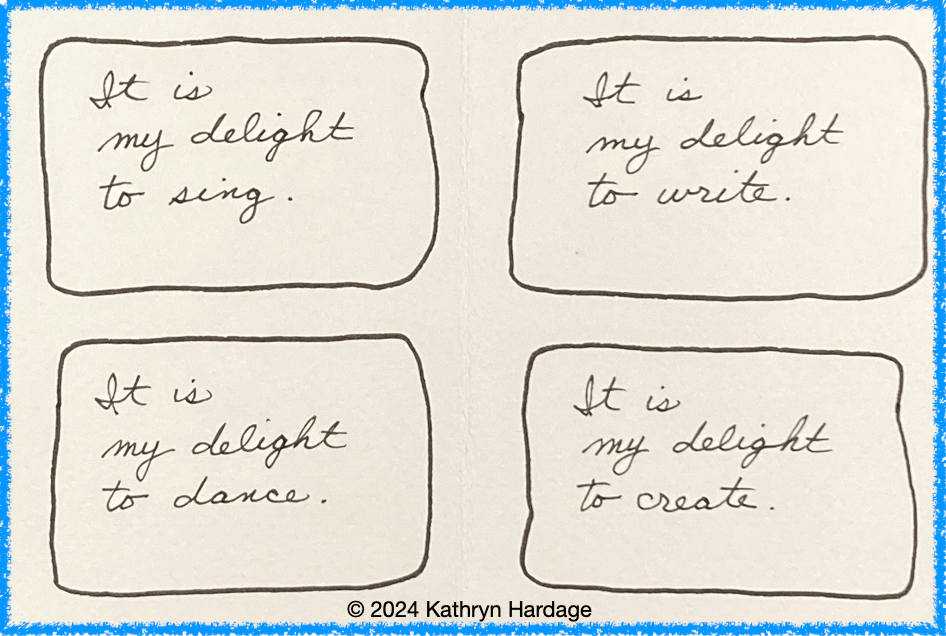 It is
my delight
to sing.
It is
my delight
to write.
It is
my delight
to dance.
It is
my delight
to create.
© 2024 Kathryn Hardage